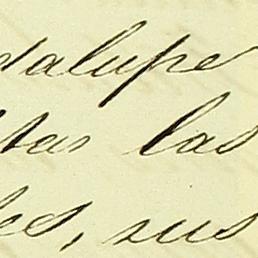 dalupe
tas las
es, sus